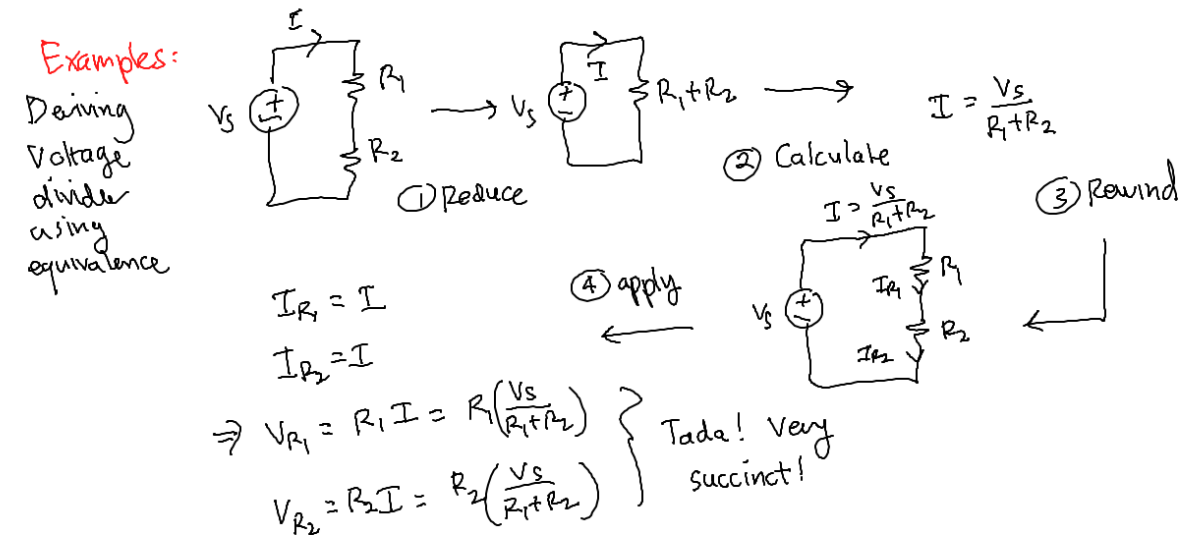 Examples:
Deriving
Voltage
divider
using
equivalence
I
Vs
+
−
R₁
R₂
① Reduce
Vs
+
−
I
R₁+R₂
② Calculate
I = Vs/(R₁+R₂)
③ Rewind
I = Vs/(R₁+R₂)
Vs
+
−
I_R₁
R₁
I_R₂
R₂
④ apply
I_R₁ = I
I_R₂ = I
⇒ V_R₁ = R₁I = R₁(Vs/(R₁+R₂))
V_R₂ = R₂I = R₂(Vs/(R₁+R₂))
Tada! Very
succinct!